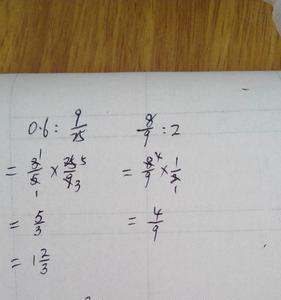 0.6 : 9/25
= 3/5 × 25/9
= 5/3
= 1 2/3
8/9 : 2
= 8/9 × 1/2
= 4/9